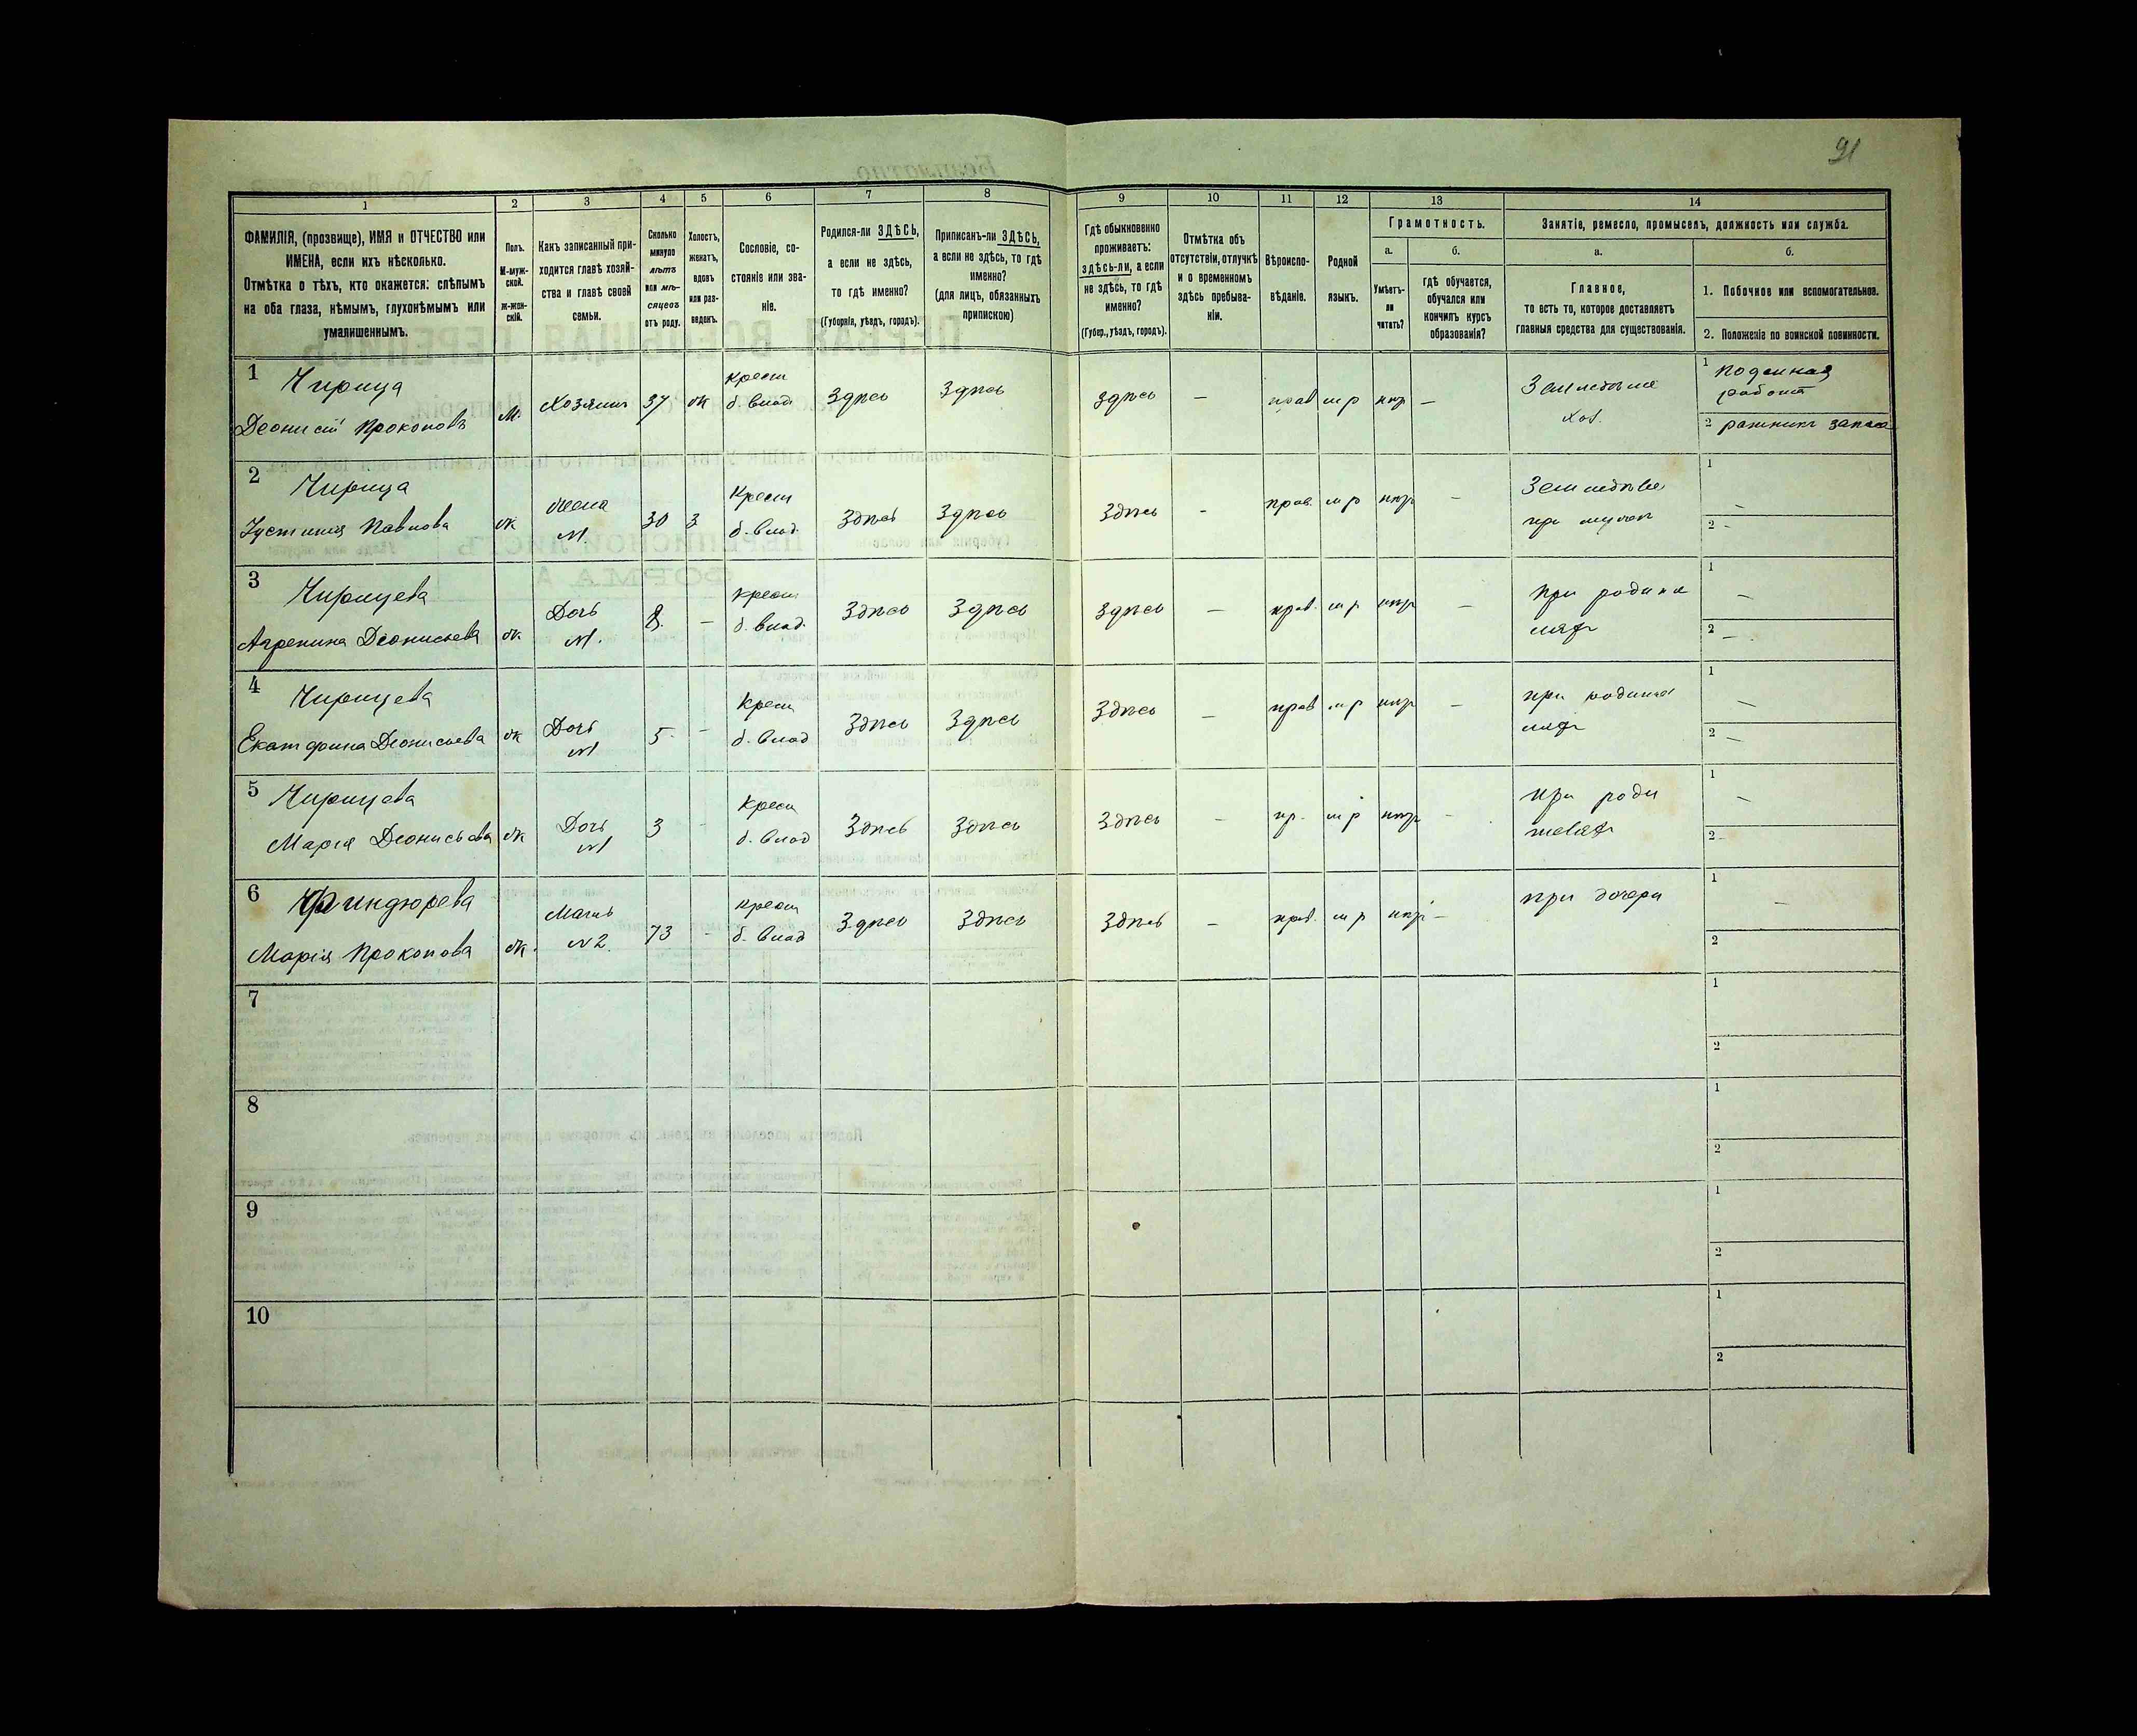 91
1 2 3 4 5 6 7 8 9 10 11 12 13 14
ФАМИЛІЯ, (прозвище), ИМЯ и ОТЧЕСТВО или
ИМЕНА, если ихъ нѣсколько.
Отмѣтка о тѣхъ, кто окажется: слѣпымъ
на оба глаза, нѣмымъ, глухонѣмымъ или
умалишеннымъ.
Полъ.
М-муж-
ской.
ж-жен-
скій.
Какъ записанный при-
ходится главѣ хозяй-
ства и главѣ своей
семьи.
Сколько
минуло
лѣтъ
или мѣ-
сяцевъ
отъ роду.
Холостъ,
женатъ,
вдовъ
или раз-
веденъ.
Сословіе, со-
стояніе или зва-
ніе.
Родился-ли ЗДѢСЬ,
а если не здѣсь,
то гдѣ именно?
(Губернія, уѣздъ, городъ).
Приписанъ-ли ЗДѢСЬ,
а если не здѣсь, то гдѣ
именно?
(для лицъ, обязанныхъ
припискою)
Гдѣ обыкновенно
проживаетъ:
здѣсь-ли, а если
не здѣсь, то гдѣ
именно?
(Губер., уѣздъ, городъ).
Отмѣтка объ
отсутствіи, отлучкѣ
и о временномъ
здѣсь пребыва-
ніи.
Вѣроиспо-
вѣданіе.
Родной
языкъ.
Грамотность.
а.
Умѣетъ-
ли
читать?
б.
гдѣ обучается,
обучался или
кончилъ курсъ
образованія?
Занятіе, ремесло, промыселъ, должность или служба.
а.
Главное,
то есть то, которое доставляетъ
главныя средства для существованія.
б.
1. Побочное или вспомогательное.
2. Положеніе по воинской повинности.
1 Чирица
Деонисій Прокоповъ
М. Хозяинъ 37 ж
крест
б. влад.
Здѣсь Здѣсь Здѣсь — прав м р нѣт —
Хоз.
1 поденная
работа
2 ратникъ запаса
2 Чирица
Устинія Павлова
ж жена
№1. 30 З
Крест
б. влад.
Здѣсь Здѣсь Здѣсь - прав. м р нѣт —
1 —
2 —
3 Чирицева
Агрепина Деонисьева
ж Дочь
№1. 8. —
крест
б. влад.
Здѣсь Здѣсь Здѣсь — прав. м р нѣт —
1 —
2 —
4 Чирицева
Екатерина Деонисьева
ж Дочь
№1 5 -
Крест
б. влад
Здѣсь Здѣсь Здѣсь — прав м р нѣт —
1 —
2 —
5 Чирицева
Марія Деонисьева
ж Дочь
№1 3 -
Крест
б. влад
Здѣсь Здѣсь Здѣсь — пр. м р нѣт -
при роди
телях
1 —
2 -
6 Финдюрева
Марія Прокопова
ж. Мать
№2. 73 -
крест
б. влад
Здѣсь Здѣсь Здѣсь — прав. м р нѣт —
при дочери
1 —
2
7
1
2
8
1
2
9
1
2
10
1
2